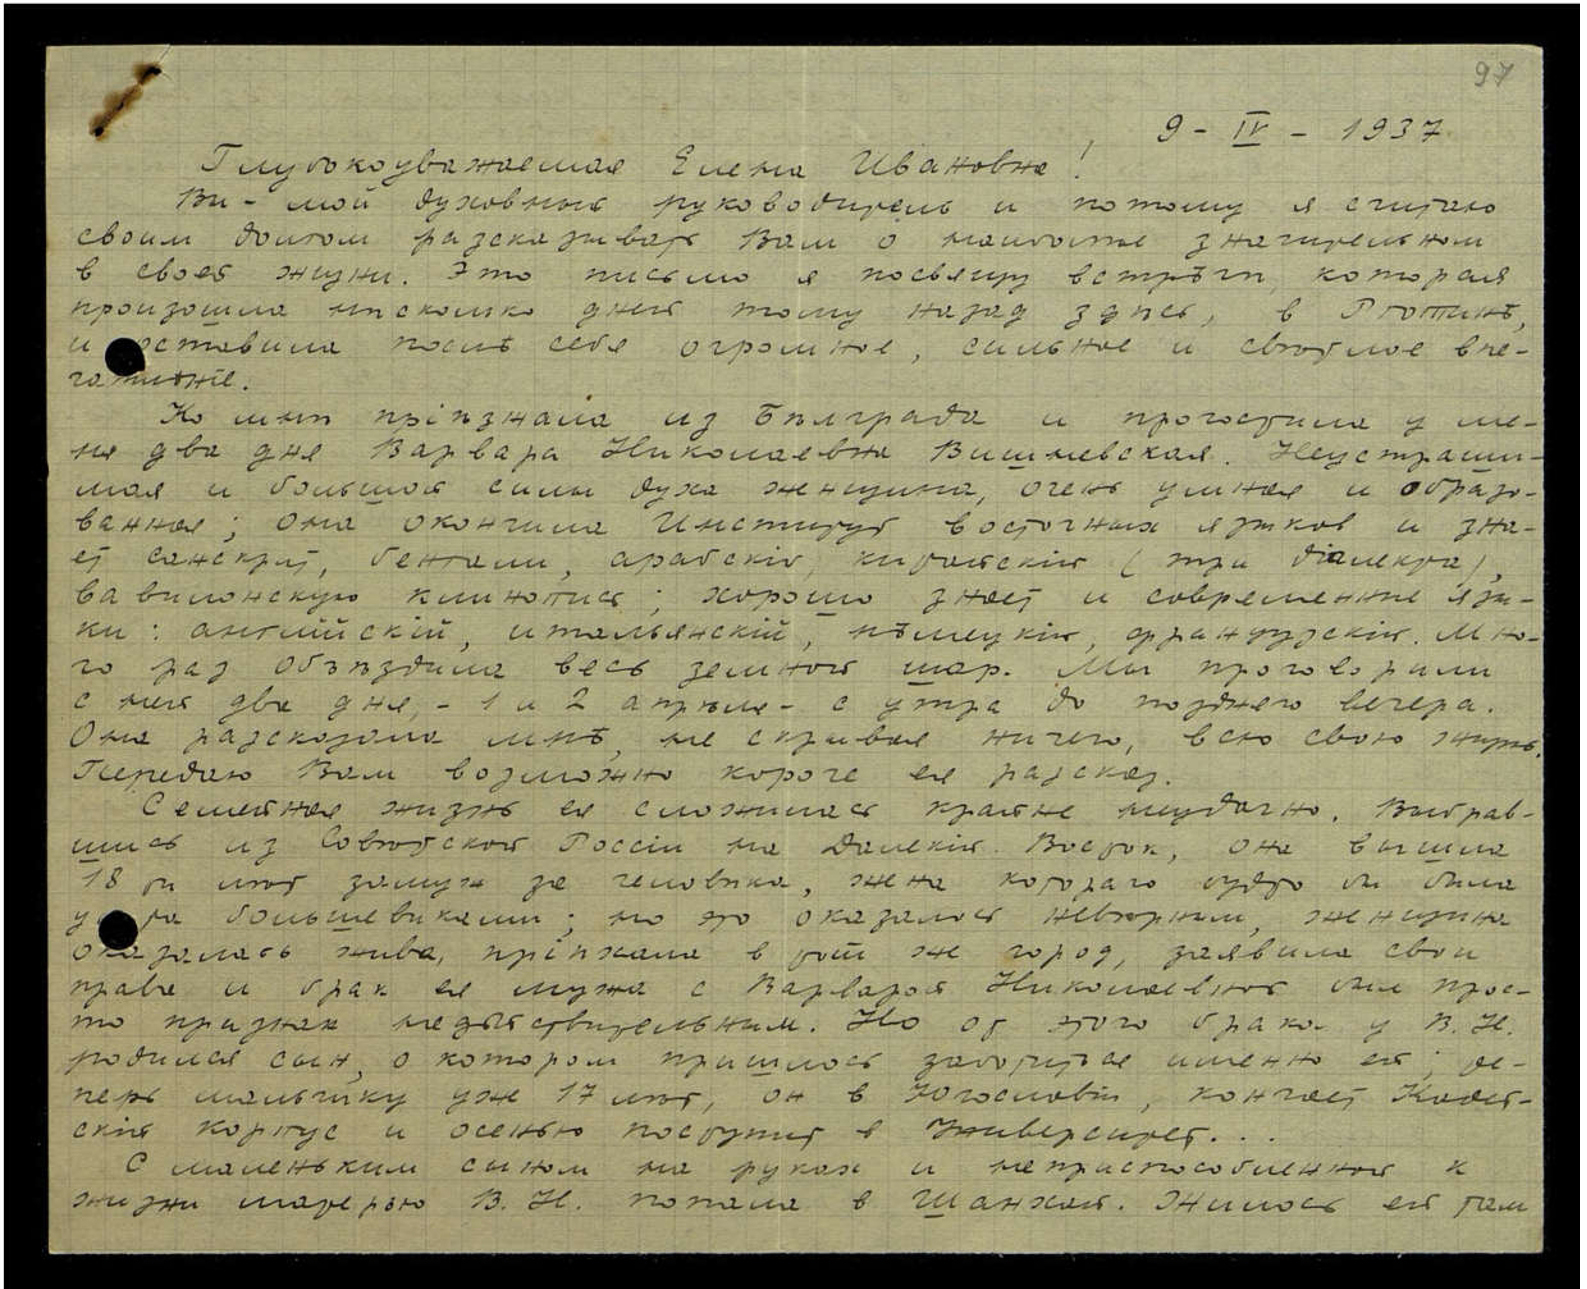 97
9 - IV - 1937
Глубокоуважаемая Елена Ивановна!
Вы - мой духовный руководитель и потому я считаю
своим долгом разсказывать Вам о наиболее значительном
в своей жизни. Это письмо я посвящу встрѣчи, которая
произошла нѣсколько дней тому назад здѣсь, в Рготинѣ,
и оставила послѣ себя огромное, сильное и свѣтлое впе-
чатлѣніе.
Ко мнѣ пріѣзжала из Бѣлграда и прогостила у ме-
ня два дня Варвара Николаевна Вишневская. Неустраши-
мая и большой силы духа женщина, очень умная и образо-
ванная; она окончила Институт восточных языков и зна-
ет санскрит, бенгали, арабскій, китайскій (три діалекта),
вавилонскую клинопись; хорошо знает и современные язы-
ки: английскій, итальянскій, нѣмецкій, французскій. Мно-
го раз объѣздила весь земной шар. Мы проговорили
с ней два дня, - 1 и 2 апрѣля - с утра до поздняго вечера.
Она разсказала мнѣ, не скрывая ничего, всю свою жизнь.
Передаю Вам возможно короче ея разсказ.
Семейная жизнь ея сложилась крайне неудачно. Выбрав-
шись из Совѣтской Россіи на Далекій Восток, она вышла
18 ти лѣт замуж за человѣка, жена котораго будто бы была
у та большевиками; но это оказалось невѣрным, женщина
оказалась жива, пріѣхала в тот же город, заявила свои
права и брак ея мужа с Варварой Николаевной был прос-
то признан недѣйствительным. Но от этого брака у В. Н.
родился сын, о котором пришлось заботиться именно ей; те-
перь мальчику уже 17 лѣт, он в Югославіи, кончает Кадет-
скій корпус и осенью поступит в Университет...
С маленьким сыном на руках и неприспособленной к
жизни матерью В. Н. попала в Шанхай. Жилось ей там